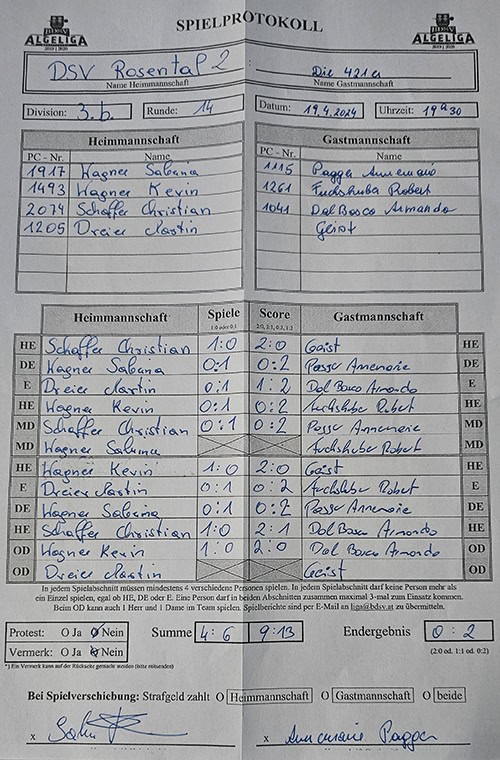 BDSV
ALGELIGA
2019 | 2020
SPIELPROTOKOLL
BDSV
ALGELIGA
2019 | 2020
DSV Rosental 2 : Die 421er
Name Heimmannschaft Name Gastmannschaft
Division: 3.b. Runde: 14 Datum: 19.4.2024 Uhrzeit: 19 30
Heimmannschaft Gastmannschaft
PC - Nr. Name PC - Nr. Name
1917 Wagner Sabrina 1115 Pagger Annemarie
1493 Wagner Kevin 1261 Fuchshuber Robert
2074 Schaffer Christian 1041 Dal Bosco Armando
1205 Dreier Martin Geist
Heimmannschaft Spiele Score Gastmannschaft
1:0 oder 0:1 2:0, 2:1, 0:2, 1:2
HE Schaffer Christian 1:0 2:0 Geist HE
DE Wagner Sabrina 0:1 0:2 Pagger Annemarie DE
E Dreier Martin 0:1 1:2 Dal Bosco Armando E
HE Wagner Kevin 0:1 0:2 Fuchshuber Robert HE
MD Schaffer Christian 0:1 0:2 Pagger Annemarie MD
MD Wagner Sabrina Fuchshuber Robert MD
HE Wagner Kevin 1:0 2:0 Geist HE
E Dreier Martin 0:1 0:2 Fuchshuber Robert E
DE Wagner Sabrina 0:1 0:2 Pagger Annemarie DE
HE Schaffer Christian 1:0 2:1 Dal Bosco Armando HE
OD Wagner Kevin 1:0 2:0 Dal Bosco Armando OD
OD Dreier Martin Geist OD
In jedem Spielabschnitt müssen mindestens 4 verschiedene Personen spielen. In jedem Spielabschnitt darf keine Person mehr als
ein Einzel spielen, egal ob HE, DE oder E. Eine Person darf in beiden Abschnitten zusammen maximal 3-mal zum Einsatz kommen.
Beim OD kann auch 1 Herr und 1 Dame im Team spielen. Spielberichte sind per E-Mail an liga@bdsv.at zu übermitteln.
Protest: O Ja O Nein Summe 4:6 9:13 Endergebnis 0:2
Vermerk: O Ja O Nein (2:0 od. 1:1 od. 0:2)
*) Ein Vermerk kann auf der Rückseite gemacht werden (bitte ankreuzen)
Bei Spielverschiebung: Strafgeld zahlt O Heimmannschaft O Gastmannschaft O beide
x x Annemarie Pagger